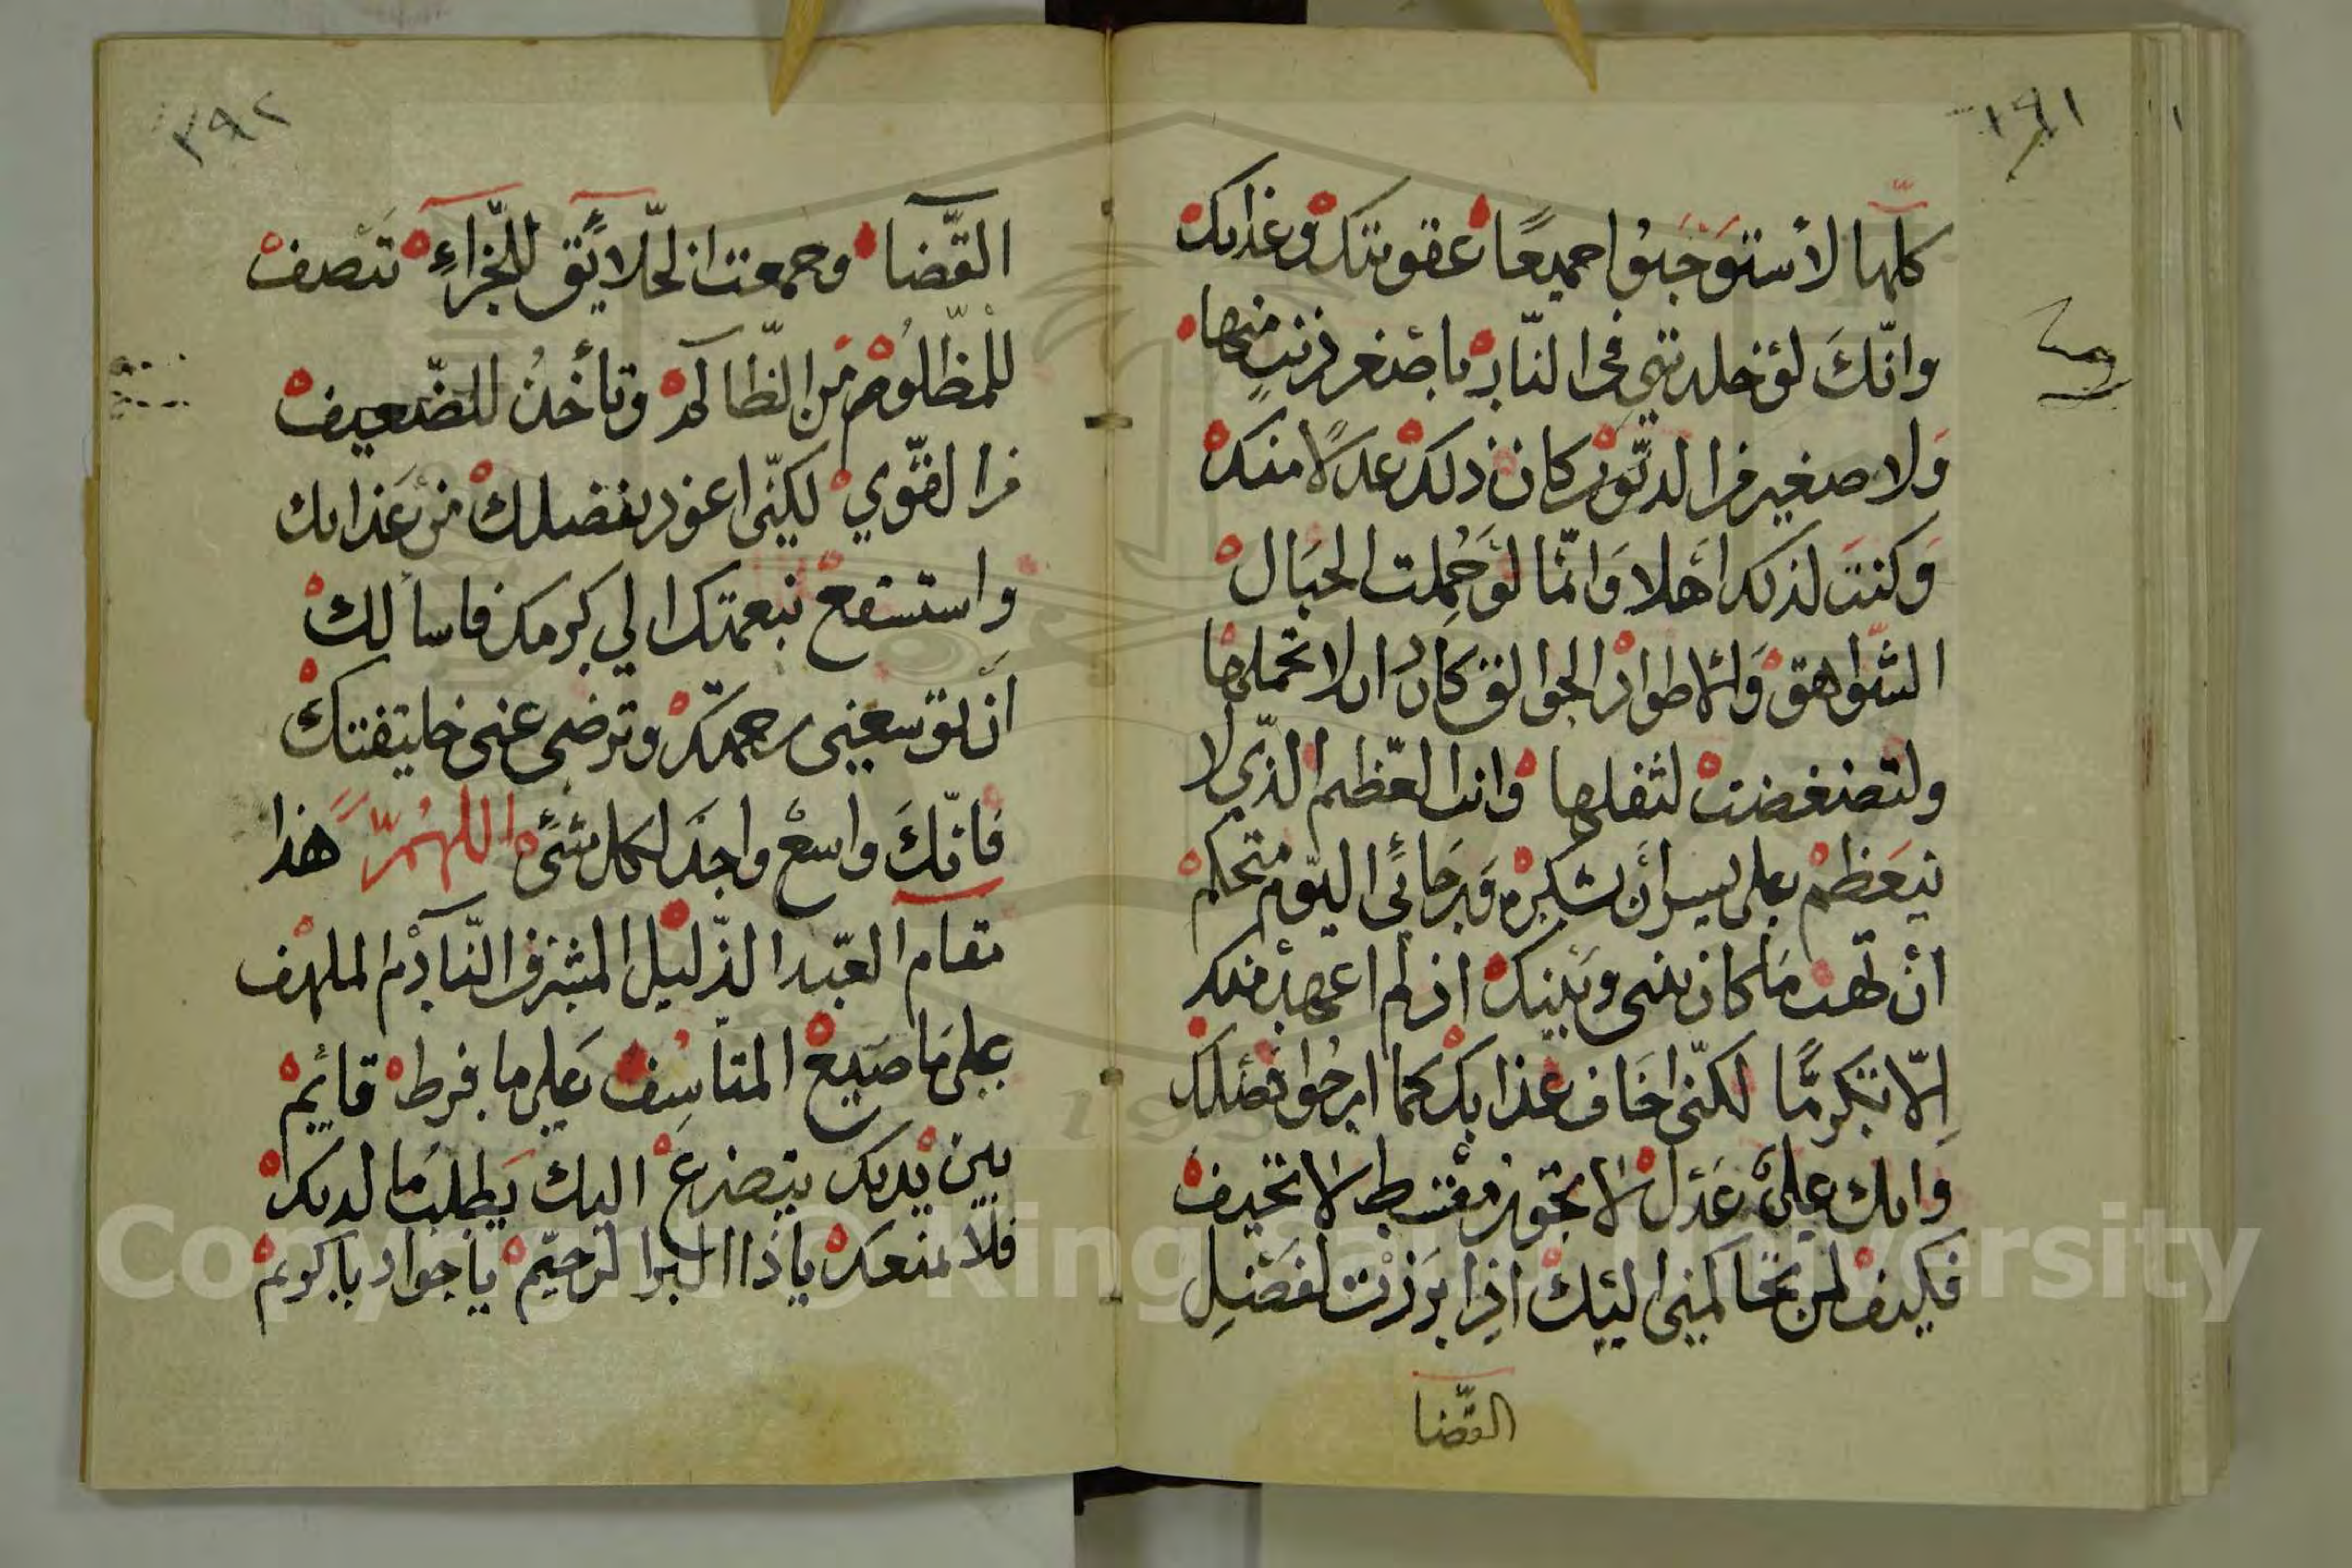 ١٩١
كلها لاستوجبوا جميعًا عقوبتك وعذابك
وانّك لو خلدتني في النّار باصغر ذنبٍ منها
ولا صغير من الذنوب كان ذلك عدلًا منك
وكنت لذلك اهلا وانّما لو حُمِلت الجبال
الشواهق والاطواد الجوالق كاد ان لا تحملها
ولتضغضت لثقلها وانت العظيم الذّي لا
يتعظم على يسير ان شكره ورجائي اليوم متحكم
ان تهب ما كان بيني وبينك اذ لم اعهد منك
الّا تكرمًّا لكنّي اخاف عذابك كما ارجوا فضلك
وانك عليّ عدل لا تجور مقسط لا تحيف
فكيف لمن تحاكمني اليك اذا برزت لفصل
القّضا
٢٩٢
القّضا وجمعت الخلايق للجزاءِ تنصف
للمظلوم من الظالم وتأخذ للضّعيف
من القوي لكنّي اعوذ بفضلك من عذابك
واستشفع بنعمتك الى كرمك فاسألك
ان توسعني رحمتك وترضى عني خليقتك
فانّك واسع واجد لكل شئ اللهمّ هذا
مقام العبد الذّليل المشرف النّادم الملهف
على ما صنيع المتاسف على ما فرط قائم
بين يديك يتضرع اليك يطلب ما لديك
فلا تمنعك ياذا البر الرحيم يا جواد يا كريم
Copyright © King Saud University